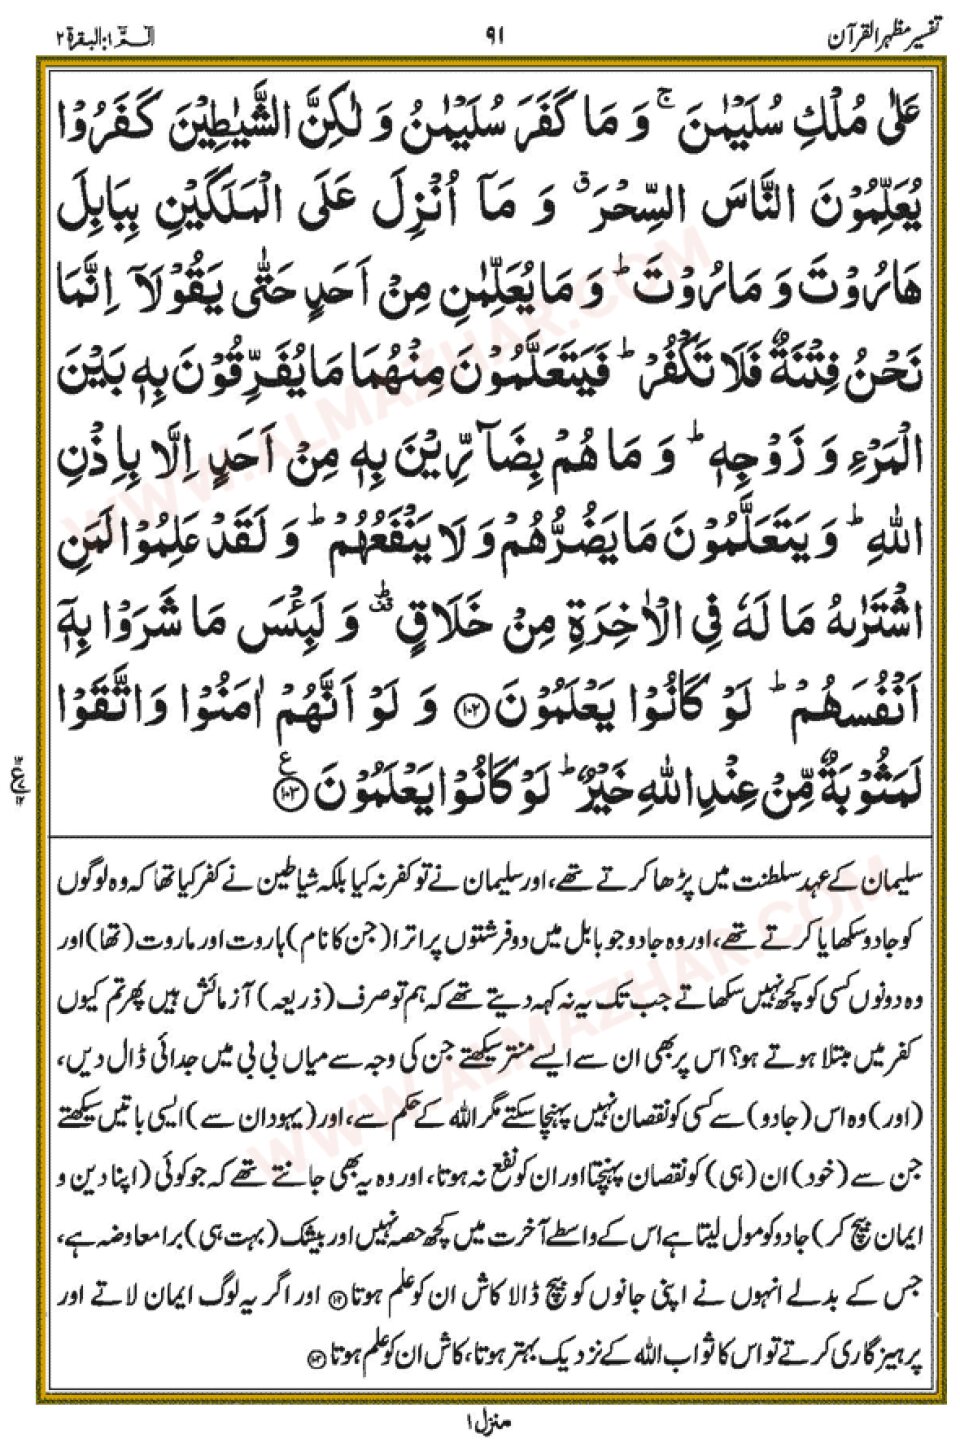 تفسیر مظہر القرآن
٩١
الٓمّٓ ١: البقرة ٢
عَلٰى مُلْكِ سُلَيْمٰنَ ۚ وَ مَا كَفَرَ سُلَيْمٰنُ وَ لٰكِنَّ الشَّيٰطِيْنَ كَفَرُوْا
يُعَلِّمُوْنَ النَّاسَ السِّحْرَ ۗ وَ مَاۤ اُنْزِلَ عَلَى الْمَلَكَيْنِ بِبَابِلَ
هَارُوْتَ وَ مَارُوْتَ ؕ وَ مَا يُعَلِّمٰنِ مِنْ اَحَدٍ حَتّٰى يَقُوْلَاۤ اِنَّمَا
نَحْنُ فِتْنَةٌ فَلَا تَكْفُرْ ؕ فَيَتَعَلَّمُوْنَ مِنْهُمَا مَا يُفَرِّقُوْنَ بِهٖ بَيْنَ
الْمَرْءِ وَ زَوْجِهٖ ؕ وَ مَا هُمْ بِضَآرِّيْنَ بِهٖ مِنْ اَحَدٍ اِلَّا بِاِذْنِ
اللّٰهِ ؕ وَ يَتَعَلَّمُوْنَ مَا يَضُرُّهُمْ وَ لَا يَنْفَعُهُمْ ؕ وَ لَقَدْ عَلِمُوْا لَمَنِ
اشْتَرٰىهُ مَا لَهٗ فِى الْاٰخِرَةِ مِنْ خَلَاقٍ ؕ وَ لَبِئْسَ مَا شَرَوْا بِهٖۤ
اَنْفُسَهُمْ ؕ لَوْ كَانُوْا يَعْلَمُوْنَ ﴿۱۰۲﴾ وَ لَوْ اَنَّهُمْ اٰمَنُوْا وَ اتَّقَوْا
لَمَثُوْبَةٌ مِّنْ عِنْدِ اللّٰهِ خَيْرٌ ؕ لَوْ كَانُوْا يَعْلَمُوْنَ ﴿۱۰۳﴾ ع
سلیمان کے عہد سلطنت میں پڑھا کرتے تھے، اور سلیمان نے تو کفر نہ کیا بلکہ شیاطین نے کفر کیا تھا کہ وہ لوگوں
کو جادو سکھایا کرتے تھے، اور وہ جادو جو بابل میں دو فرشتوں پر اترا (جن کا نام) ہاروت اور ماروت (تھا) اور
وہ دونوں کسی کو کچھ نہیں سکھاتے جب تک یہ نہ کہہ دیتے تھے کہ ہم تو صرف (ذریعہ) آزمائش ہیں پھر تم کیوں
کفر میں مبتلا ہوتے ہو؟ اس پر بھی ان سے ایسے منتر سیکھتے جن کی وجہ سے میاں بی بی میں جدائی ڈال دیں،
(اور) وہ اس (جادو) سے کسی کو نقصان نہیں پہنچا سکتے مگر اللہ کے حکم سے، اور (یہود ان سے) ایسی باتیں سیکھتے
جن سے (خود) ان (ہی) کو نقصان پہنچتا اور ان کو نفع نہ ہوتا، اور وہ یہ بھی جانتے تھے کہ جو کوئی (اپنا دین و
ایمان بیچ کر) جادو کو مول لیتا ہے اس کے واسطے آخرت میں کچھ حصہ نہیں اور بیشک (بہت ہی) برا معاوضہ ہے،
جس کے بدلے انہوں نے اپنی جانوں کو بیچ ڈالا کاش ان کو علم ہوتا ﴿۱۰۲﴾ اور اگر یہ لوگ ایمان لاتے اور
پرہیز گاری کرتے تو اس کا ثواب اللہ کے نزدیک بہتر ہوتا، کاش ان کو علم ہوتا ﴿۱۰۳﴾
منزل ١
WWW.ALMAZHAR.COM
WWW.ALMAZHAR.COM